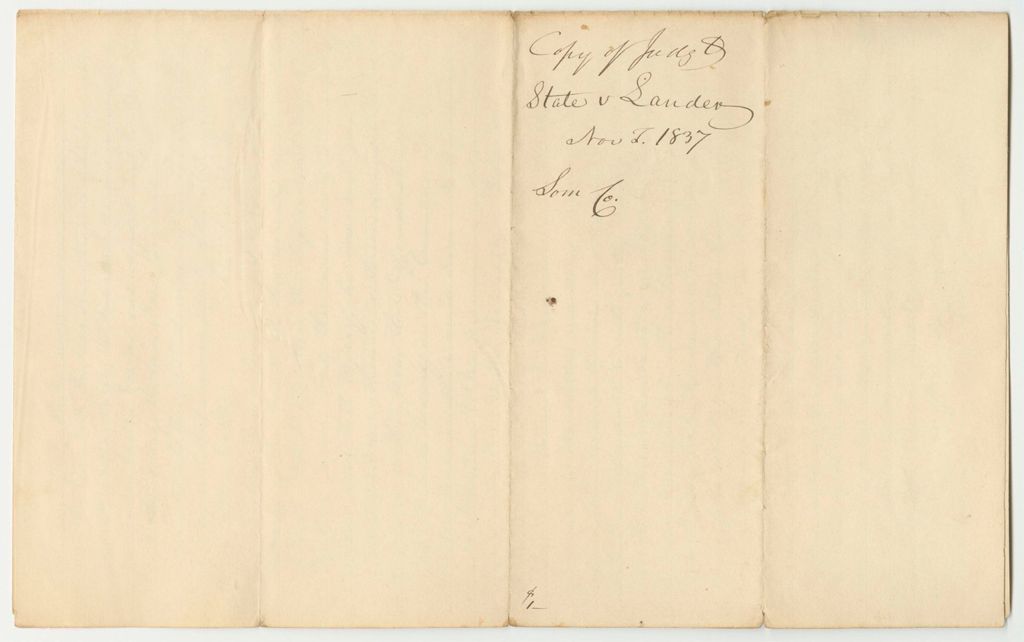 Copy of Judgt
State v Lander
Nov T. 1837
Som Co.
$1_